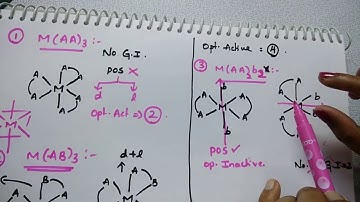 ① M(AA)₃ :-
No G.I.
POS ✗
d l
Opt. Act ⇒ ②
A A A A A A M
② M(AB)₃ :-
d+l
A B A M
Opt. Active = ④
③ M(AA)₂b₂ :-
b
A A M A A
b
POS ✓
Op. Inactive
A A b b A A
No.